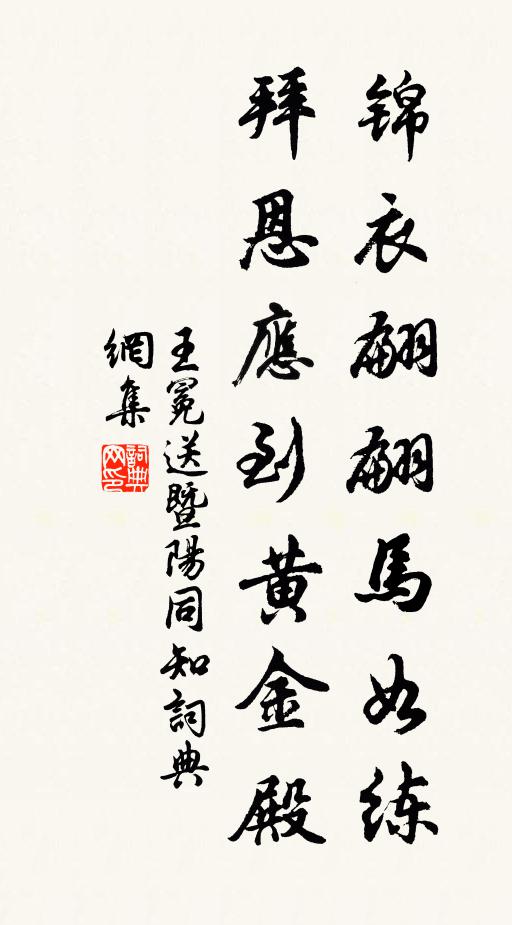 锦衣翩翩馬如练
拜恩應到黄金殿
王冕送暨陽同知詞典
網集
詞典網印